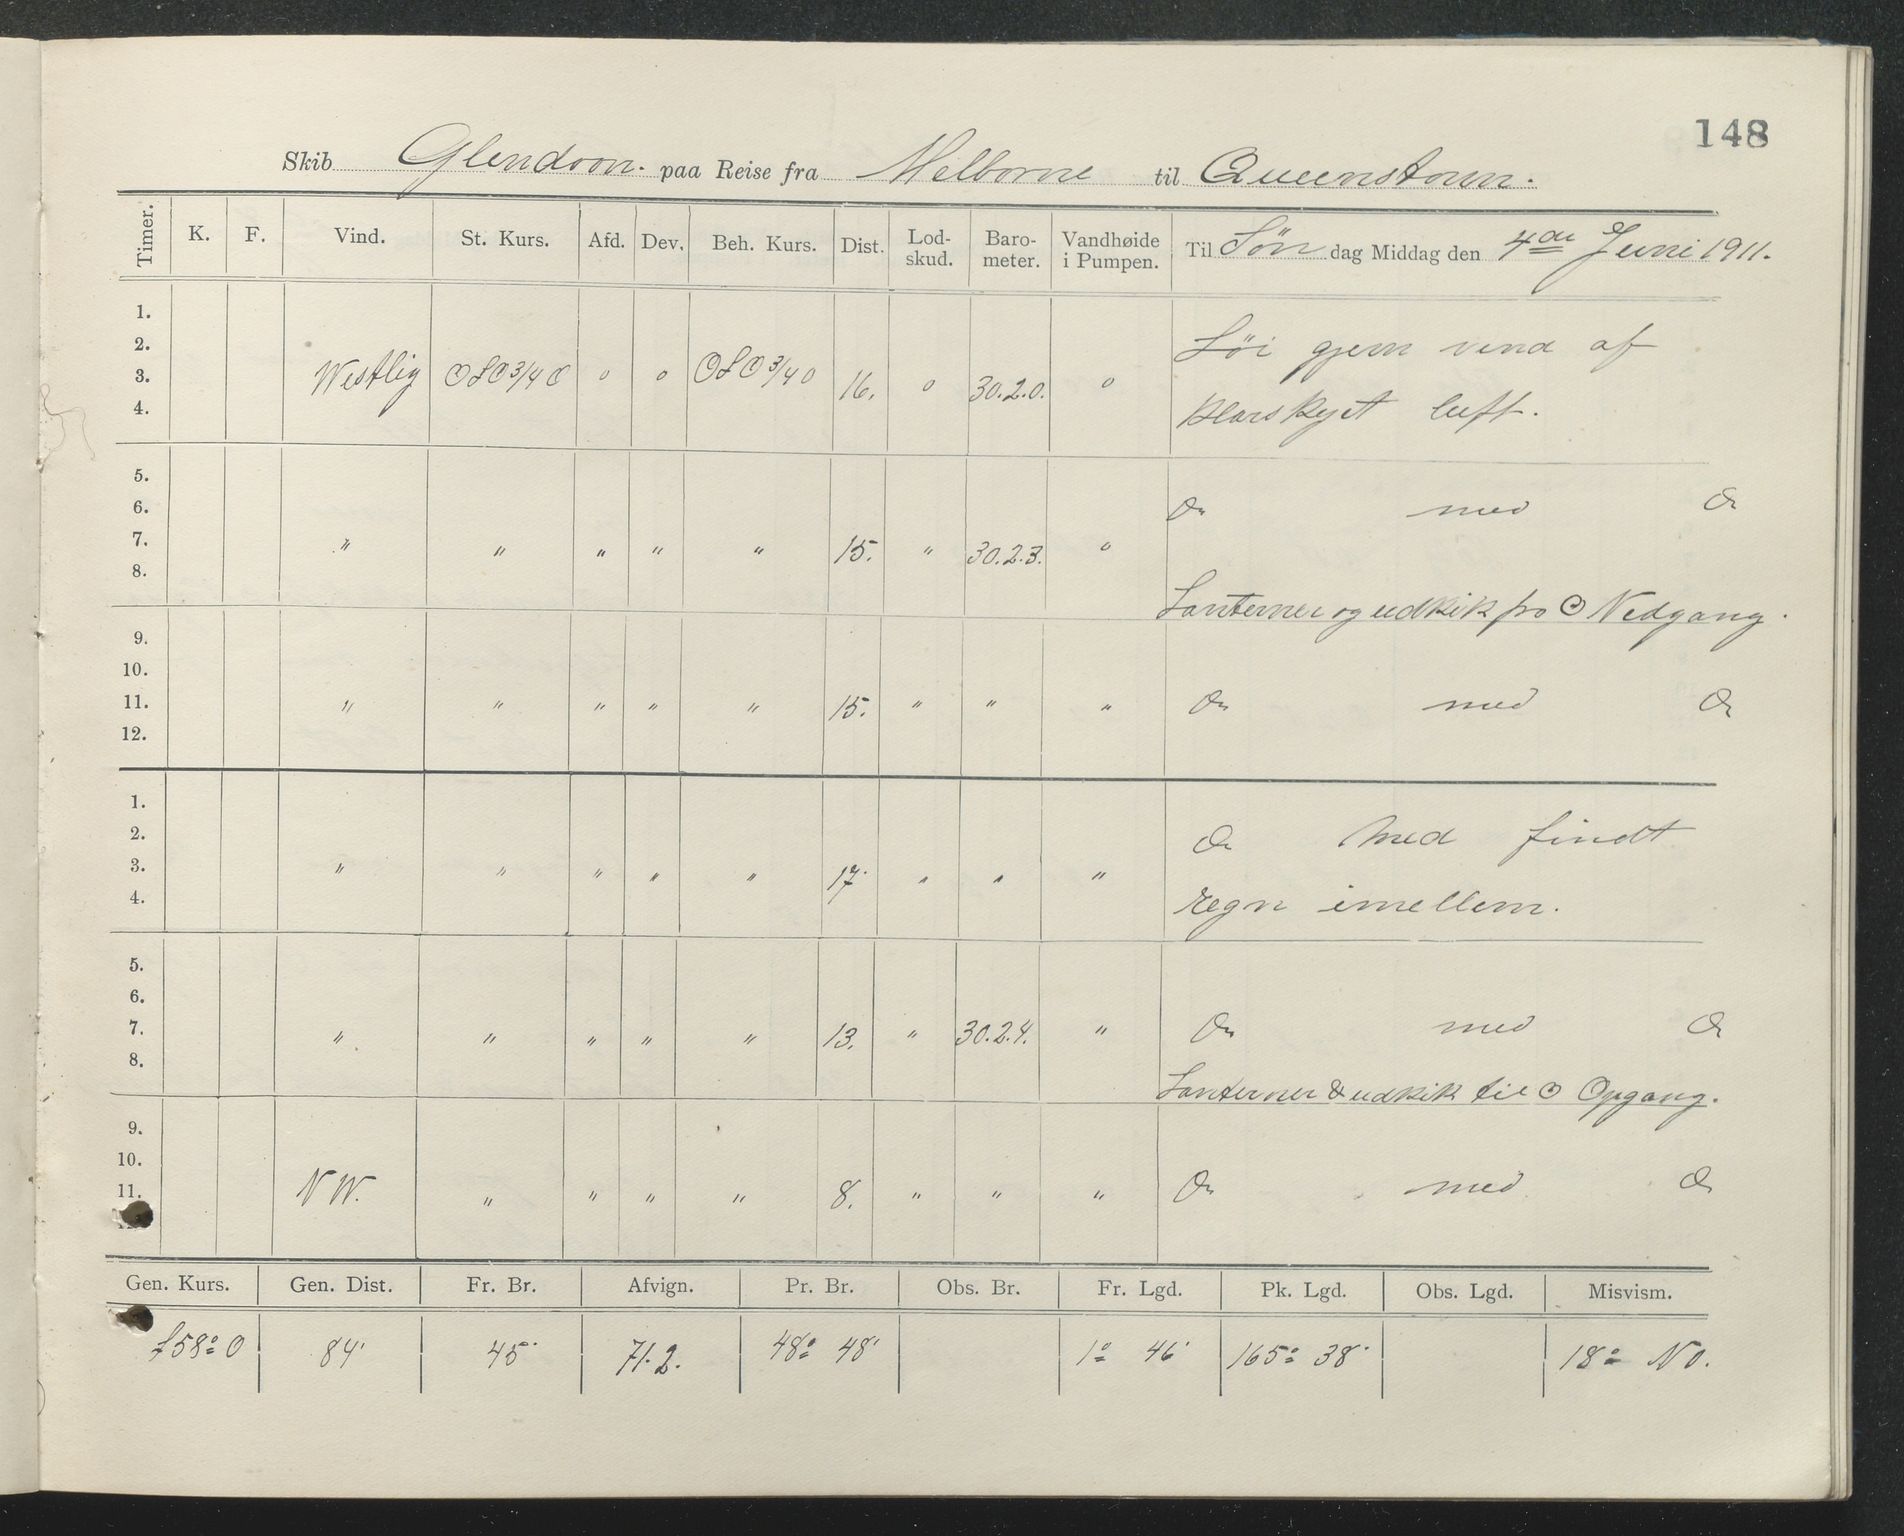 148
Skib Glendoon. paa Reise fra Melborne til Queenstown.
Timer. K. F. Vind. St. Kurs. Afd. Dev. Beh. Kurs. Dist. Lod-skud. Baro-meter. Vandhøide i Pumpen. Til Søn dag Middag den 4de Juni 1911.
1.
2. Søi gjem vind af
3. Westlig OSO 3/4 O o o OSO 3/4 O 16. o 30.2.0. o
4. Klarskyet luft.
5.
6. Do med Do
7. " " " " " 15. " 30.2.3. o
8.
Lanterner og udkik fra ☉ Nedgang.
9.
10.
11. " " " " " 15. " " " Do med Do
12.
1.
2. Do med findt
3. " " " " " 17. " " "
4. regn imellem.
5.
6.
7. " " " " " 13. " 30.2.4. " Do med Do
8.
Lanterner & udkik til ☉ Opgang.
9.
10.
11. NW. " " " " 8. " " " Do med Do
Gen. Kurs. Gen. Dist. Fr. Br. Afvign. Pr. Br. Obs. Br. Fr. Lgd. Pk. Lgd. Obs. Lgd. Misvism.
S58° O 84' 45' 71.2. 48° 48' 1° 46' 165° 38' 18° NO.